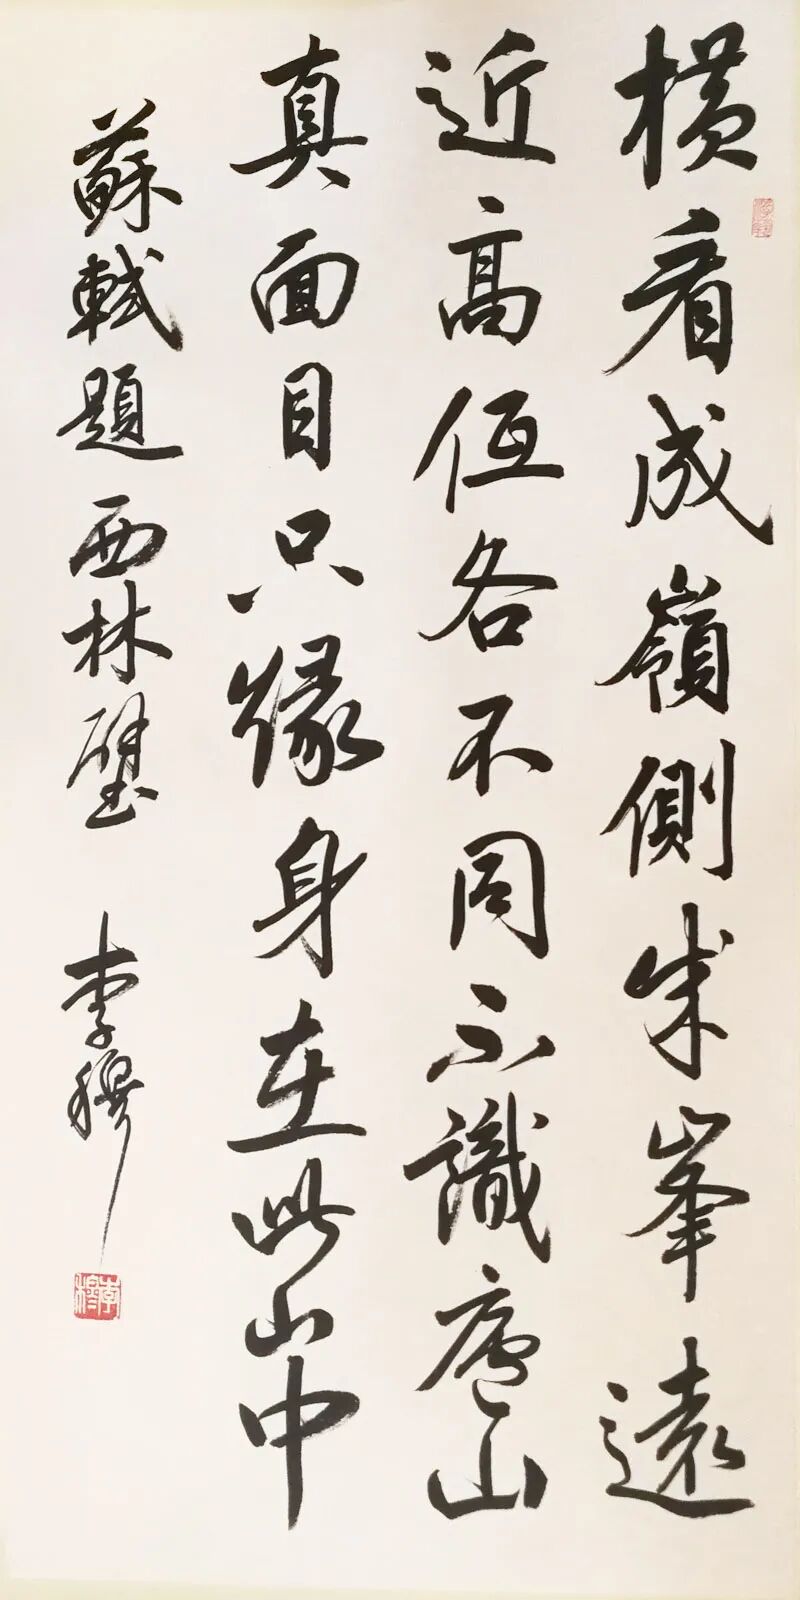 橫看成嶺側成峯遠
近高低各不同不識廬山
真面目只緣身在此山中
蘇軾題西林壁 李穆
李穆